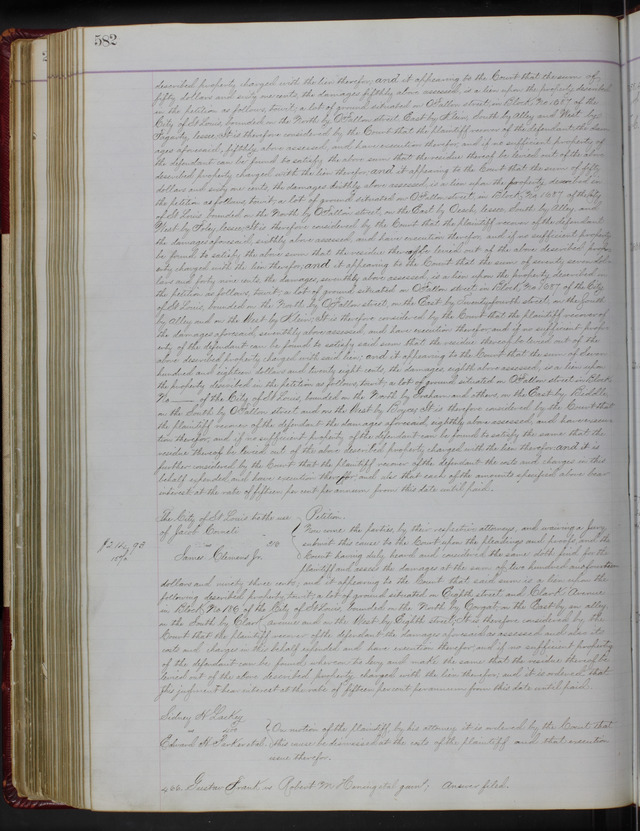 582
described property charged with the lien therefor, and it appearing to the Court that the sum of
fifty dollars and sixty nine cents, the damages fifthly above assessed, is a lien upon the property described
in the petition as follows, towit; a lot of ground situated on O'Fallon street, in Block No 1057 of the
City of St Louis, bounded on the North by O'Fallon street, East by Klein, South by Alley and West by
Fogerty, lessee. It is therefore considered by the Court that the plaintiff recover of the defendant, the dam
ages aforesaid, fifthly above assessed, and have execution therefor, and if no sufficient property of
the defendant can be found to satisfy the above sum that the residue thereof be levied out of the above
described property charged with the lien therefor, and it appearing to the Court that the sum of fifty
dollars and sixty nine cents, the damages sixthly above assessed, is a lien upon the property described in
the petition as follows, towit; a lot of ground situated on O'Fallon street, in Block No 1057 of the City
of St Louis, bounded on the North by O'Fallon street, on the East by lessee, South by Alley and
West by lessee; It is therefore considered by the Court that the plaintiff recover of the defendant
the damages aforesaid, sixthly above assessed, and have execution therefor, and if no sufficient property
be found to satisfy the above sum that the residue be levied out of the above described prop
erty charged with the lien therefor; and it appearing to the Court that the sum of seventy seven dol
lars and forty nine cents, the damages, seventhly above assessed, is a lien upon the property described in
the petition as follows, towit; a lot of ground situated on O'Fallon street in Block No 1057 of the City
of St Louis, bounded on the North by O'Fallon street, on the East by Twentyfourth street, on the South
by Alley and on the West by Klein; It is therefore considered by the Court that the plaintiff recover of
the damages aforesaid, seventhly above assessed, and have execution therefor, and if no sufficient prop
erty of the defendant can be found to satisfy said sum that the residue thereof be levied out of the
above described property charged with said lien; and it appearing to the Court that the sum of
hundred and eighteen dollars and twenty eight cents, the damages, eighth above assessed, is a lien upon
the property described in the petition as follows, towit; a lot of ground situated on O'Fallon street in Block
No — of the City of St Louis, bounded on the North by Graham and others, on the East by Biddle,
on the South by O'Fallon street and on the West by Boyce; It is therefore considered by the Court that
the plaintiff recover of the defendant the damages aforesaid, eighthly above assessed, and have execu
tion therefor, and if no sufficient property of the defendant can be found to satisfy the same that the
residue thereof be levied out of the above described property charged with the lien therefor; and it is
further considered by the Court that the plaintiff recover of the defendant the costs and charges in this
behalf expended and have execution therefor and also that each of the amounts specified above bear
interest at the rate of fifteen per cent per annum from this date until paid.
The City of St Louis to the use Petition.
of Jacob Now come the parties, by their respective attorneys, and waiving a jury
vs submit this cause to the Court upon the pleadings and proofs and the
James Clemens Jr. Court having duly heard and considered the same doth find for the
plaintiff and assess the damages at the sum of two hundred and
dollars and ninety three cents; and it appearing to the Court that said sum is a lien upon the
following described property towit; a lot of ground situated on Eighth street and Clark Avenue
in Block No 186 of the City of St Louis, bounded on the North by on the East by an alley
on the South by Clark Avenue and on the West by Eighth street; It is therefore considered by the
Court that the plaintiff recover of the defendant the damages aforesaid as assessed and also its
costs and charges in this behalf expended and have execution therefor and if no sufficient property
of the defendant can be found whereon to levy and make the same that the residue thereof be
levied out of the above described property charged with the lien therefor; and it is ordered that
this judgment bear interest at the rate of fifteen per cent per annum from this date until paid.
Sidney H. Lackey
vs On motion of the plaintiff by his attorney it is ordered by the Court that
Edward H. this cause be dismissed at the costs of the plaintiff and that execution
issue therefor.
Gustav Frank vs Robert M garn't; Answer filed.